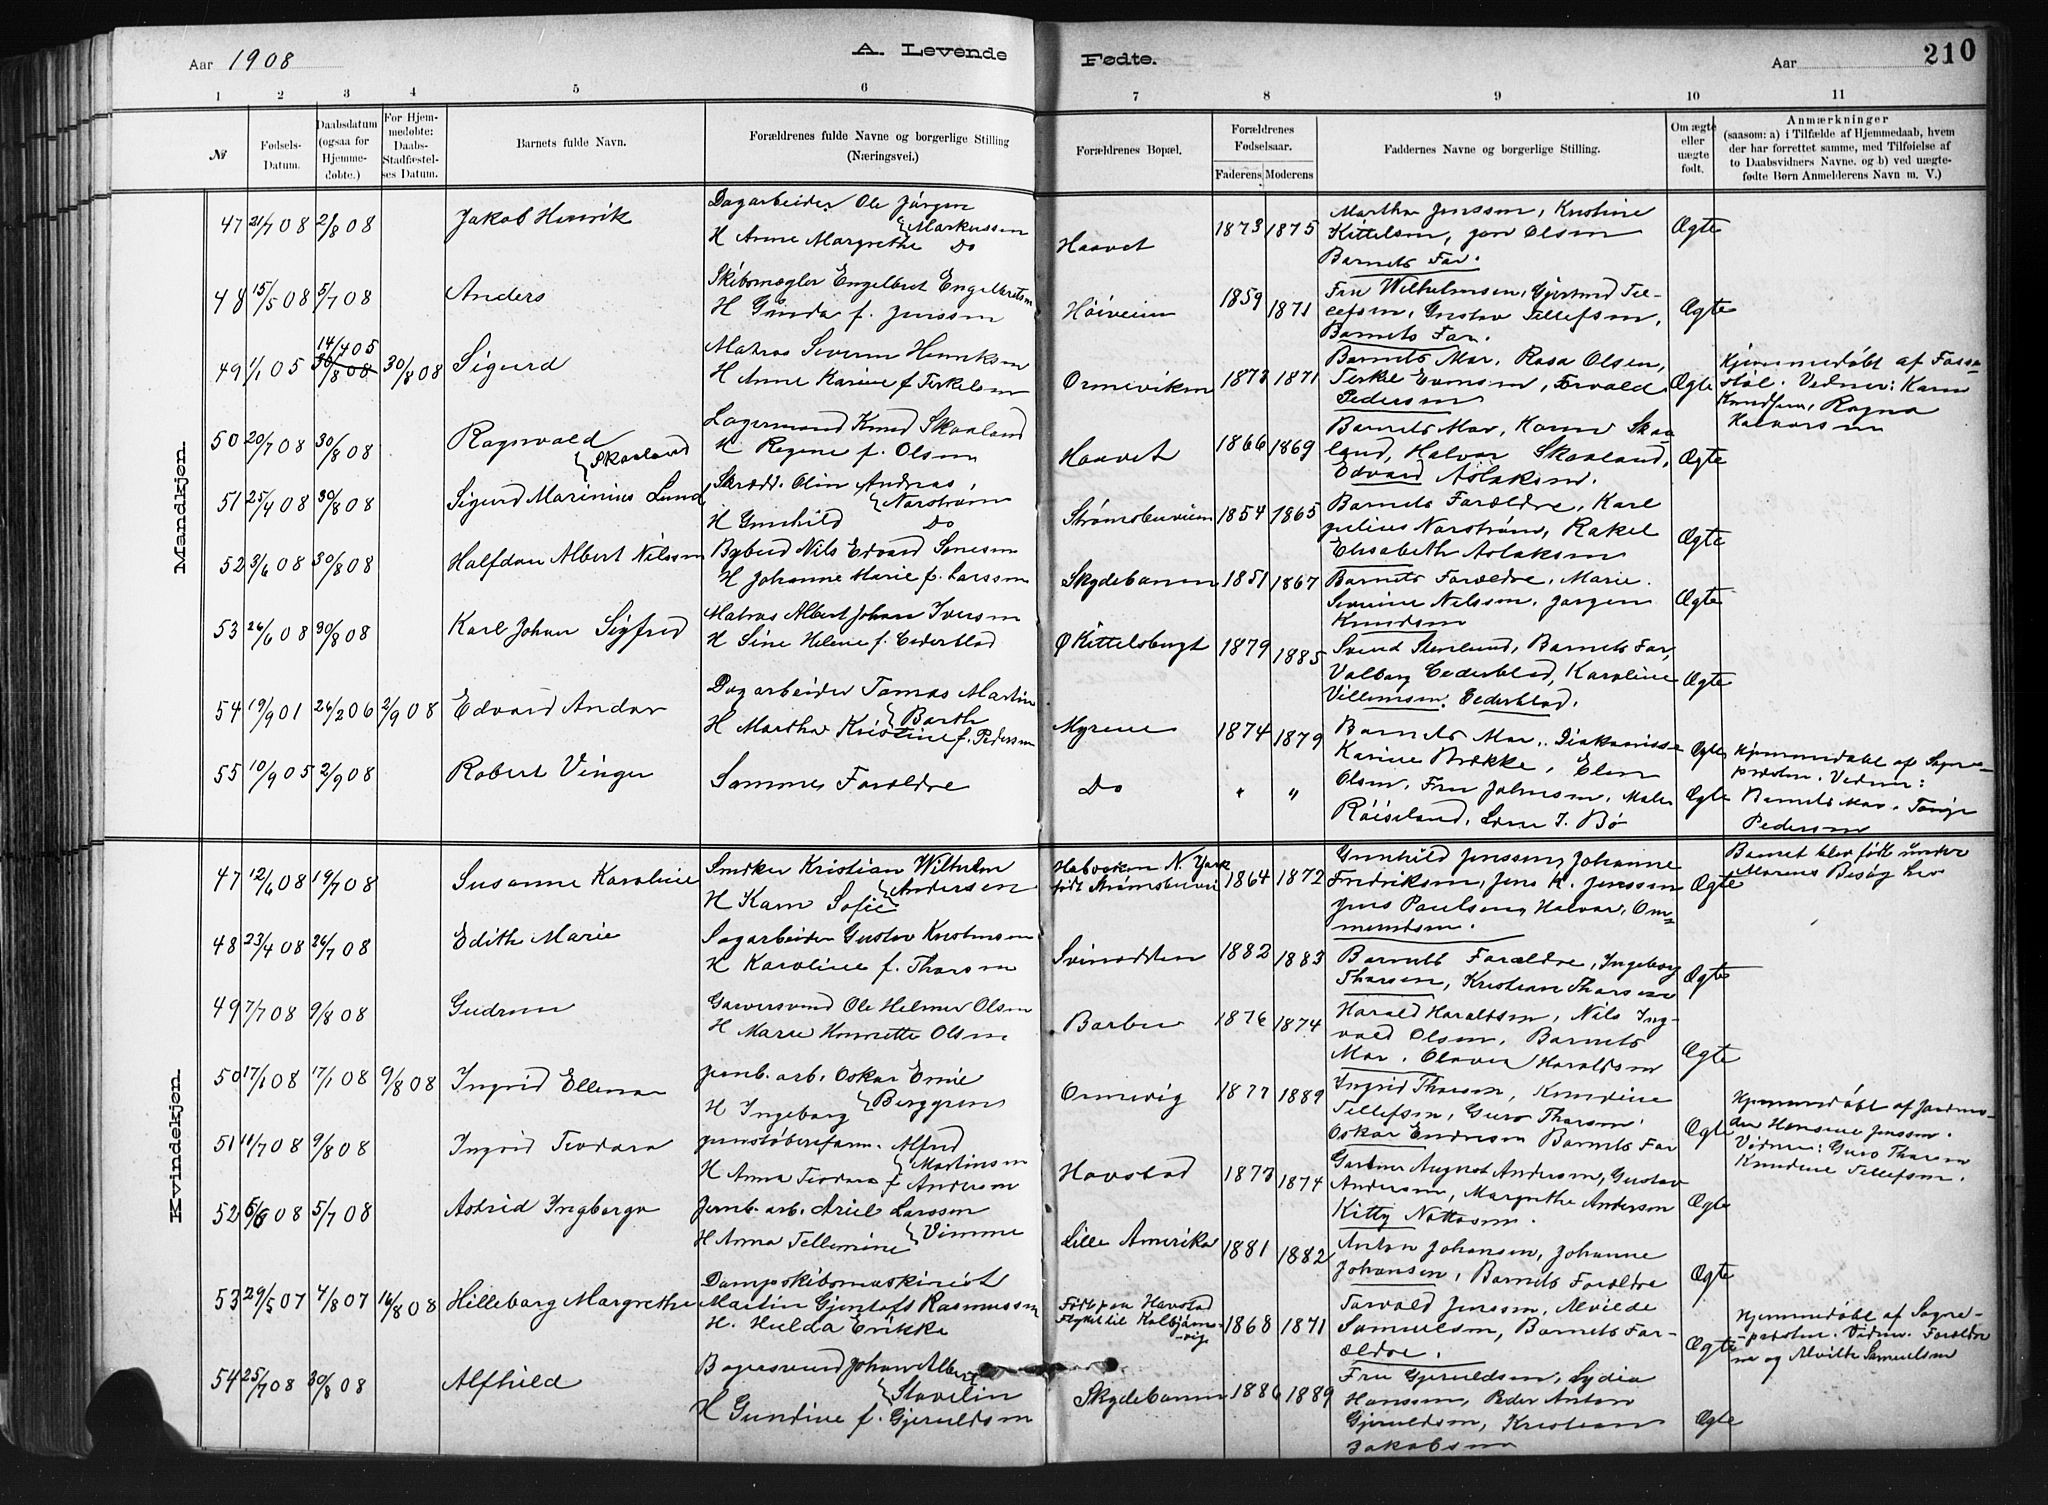 Aar 1908
A. Levende Fødte.
Aar 210
1 2 3 4 5 6 7 8 9 10 11
№
Fødsels-Datum.
Daabsdatum (ogsaa for Hjemmedøbte.)
For Hjemmedøbte: Daabs-Stadfæstelses Datum.
Barnets fulde Navn.
Forældrenes fulde Navne og borgerlige Stilling (Næringsvei.)
Forældrenes Bopæl.
Forældrenes Fødselsaar.
Faderens Moderens
Faddernes Navne og borgerlige Stilling.
Om ægte eller uægte født.
Anmærkninger
(saasom: a) i Tilfælde af Hjemmedaab, hvem
der har forrettet samme, med Tilføielse af
to Daabsvidners Navne. og b) ved uægte-
fødte Børn Anmelderens Navn m. V.)
Mandkjøn.
47 21/7 08 2/8 08 Jakob Henrik
Dagarbeider Ole Jørgen
Markussen
H Anne Margrethe Do
Haavet 1873 1875
Martha Jenssen, Kristine
Kittelsen, Jon Olsen
Barnets Far.
Ægte
48 15/5 08 5/7 08 Anders
Skibsmægler Engelbret Engelbretsen
H Gunda f. Jenssen
Høiveien 1859 1871
Fru Wilhelmsen, Gjertrud Tel-
lefsen, Gustav Tellefsen,
Barnets Far.
Ægte
49 1/1 05 14/4 05 30/8 08 30/8 08 Sigurd
Matros Severin Henriksen
H Anne Karine f Terkelsen
Ormeviken 1873 1871
Barnets Mor, Rosa Olsen,
Terkel Evensen, Torvald
Pedersen
Ægte
Hjemmedøbt af
Vidner: Karen
Knudsen, Ragna
Halvorsen
50 20/7 08 30/8 08 Ragnvald
Skaaland
Lagermand Knud Skaaland
H Regine f. Olsen
Haavet 1866 1869
Barnets Mor, Karen Skaa-
land, Halvor Skaaland,
Edvard Aslaksen.
Ægte
51 25/4 08 30/8 08 Sigurd Marinius Lund
Skrædd. Olin Andreas
Narstrøm
H Gunhild Do
Strømsbuveien 1854 1865
Barnets Forældre, Karl
Julius Narstrøm, Rakel
Elisabeth Aslaksen
Ægte
52 3/6 08 30/8 08 Halfdan Albert Nilssen
Bybud Nils Edvard Sønesen
H Johanne Marie f. Larssen
Skydebanen 1851 1867
Barnets Forældre, Marie
Severine Nilssen, Jørgen
Knudsen
Ægte
53 26/6 08 30/8 08 Karl Johan Sigfred
Matros Albert Johan Iversen
H Sine Helene f. Cederblad
Ø Kittelsbugt 1879 1885
Svend Stenlund, Barnets Far,
Valborg Cederblad, Karoline
Villemsen Cederblad.
Ægte
54 19/9 01 26/2 06 2/9 08 Edvard Andor
Dagarbeider Tomas Martin
Barth
H Martha Kristine f. Pedersen
Myrene 1874 1879
Barnets Mor, Diakonisse
Karine Brekke, Elen
Ægte
55 10/9 05 2/9 08 Robert Vinger
Samme Forældre
Do " "
Olsen, Fru Johnsen, Maler
Røiseland, Lorens J. Bø
Ægte
Hjemmedøbt af Sogne-
præsten. Vidner:
Barnets Mor, Tonje
Pedersen
Kvindekjøn.
47 12/6 08 19/7 08 Susanne Karoline
Snedker Kristian Wilhelm
Andersen
H Karen Sofie
Hoboken N. York
født Strømsbuvei 1864 1872
Gunhild Jenssen, Johanne
Fredriksen, Jens K. Jenssen
Jens Paulsen, Halvor Om-
mundsen.
Ægte
Barnet blev født under
Morens Besøg her
48 23/4 08 26/7 08 Edith Marie
Sagarbeider Gustav Knutsen
H Karoline f. Thorsen
Svinodden 1882 1883
Barnets Forældre, Ingeborg
Thorsen, Kristian Thorsen
Ægte
49 7/7 08 9/8 08 Gudrun
Garversvend Ole Helmer Olsen
H Marie Henriette Olsen
Barbu 1876 1874
Harald Haraldsen, Nils Ing-
vald Olsen, Barnets
Mor, Olava Haraldsen
Ægte
50 17/1 08 17/1 08 9/8 08 Ingrid Ellena
Jernb. arb. Oskar Emil
Berggren
H Ingeborg
Ormevig 1877 1889
Ingrid Thorsen, Kundine
Tellefsen, Guro Thorsen,
Oskar Endresen Barnets Far
Ægte
Hjemmedøbt af Jordmo-
der Hansine Jenssen.
Vidner: Guro Thorsen
Kundine Tellefsen.
51 10/7 08 9/8 08 Ingrid Teodora
Jernstøberiform. Alfred
Martinsen
H Anna Teodora f Andersen
Havstad 1873 1874
Gartner August Andersen, Gustav
Andersen, Margrethe Anderson
Kitty
Ægte
52 5/6 08 5/7 08 Astrid Ingborga
Jernb. arb. Ariel Larssen
Vimme
H Anna Tellemine
Lille Amerika 1881 1882
Anton Johansen, Johanne
Johansen, Barnets Forældre
Ægte
53 29/5 07 4/8 07 16/8 08 Hilleborg Margrethe
Dampskibsmaskinist
Martin Gjentofs Rasmussen
H. Hulda Erikke
Født paa Havstad
Flyttet til Kolbjørns-
vig 1868 1871
Torvald Jenssen, Alvilde
Samuelsen, Barnets For-
ældre.
Ægte
Hjemmedøbt af Sogne-
præsten. Vidner. Forældre
ne og Alvilde Samuelsen
54 25/7 08 30/8 08 Alfhild
Bagersvend Johan Albert
Stavelin
H Gundine f. Gjeruldsen
Skydebanen 1886 1889
Fru Gjeruldsen, Lydia
Hanssen, Peder Anton
Gjeruldsen, Kristian
Jakobsen
Ægte